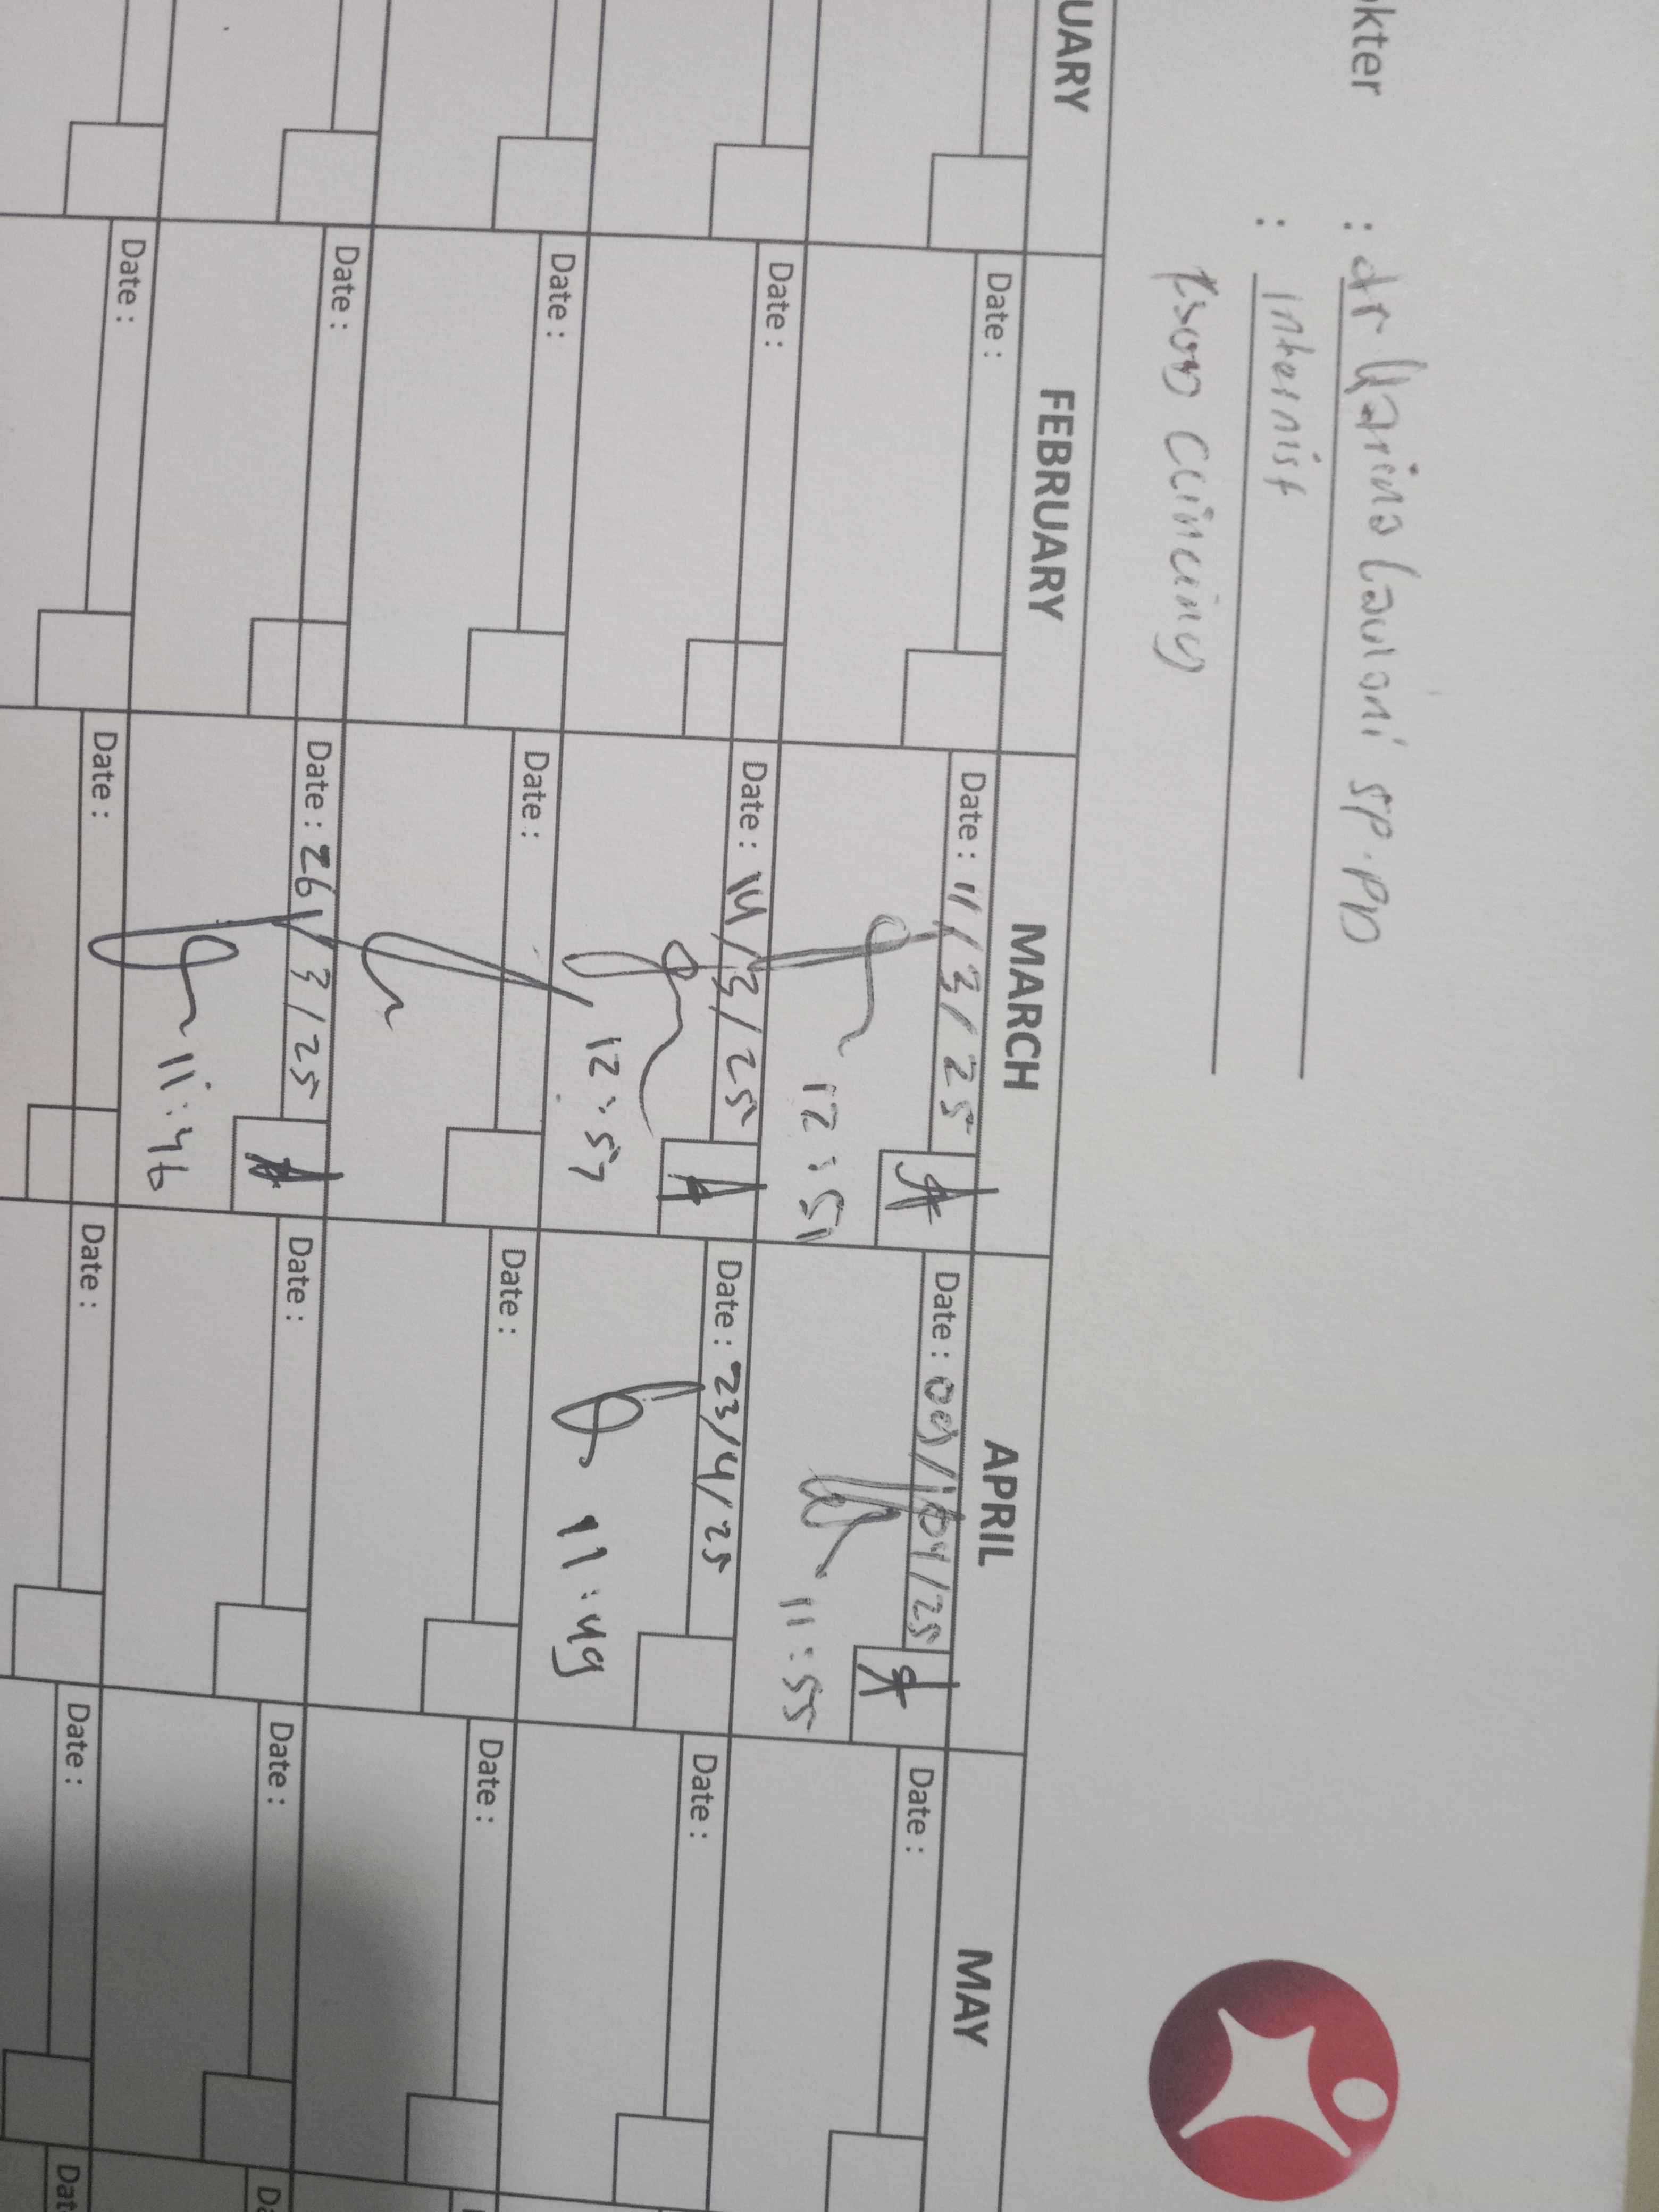 kter : dr Karina Lavioni SP.PD
: Internist
RSUD Cilincing
UARY FEBRUARY MARCH APRIL MAY
Date : Date : 11/3/25 Date : 09/04/25 Date :
12:51 11:55
Date : Date : 14/3/25 Date : 23/4/25 Date :
12:57 11:49
Date : Date : Date : Date :
Date : Date : 26/3/25 Date : Date : Da
11:46
Date : Date : Date : Date : Dat